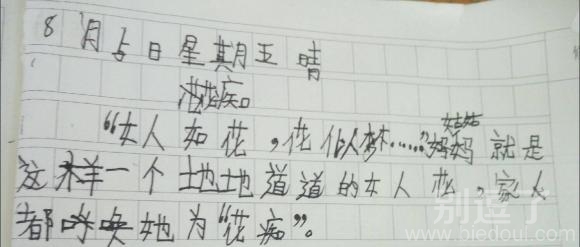 8月5日星期五 晴
花痴
姑姑
“女人如花,花似梦……”妈妈就是
这样一个地地道道的女人花,家人
都呼唤她为“花痴”。
别逗了
www.biedoul.com